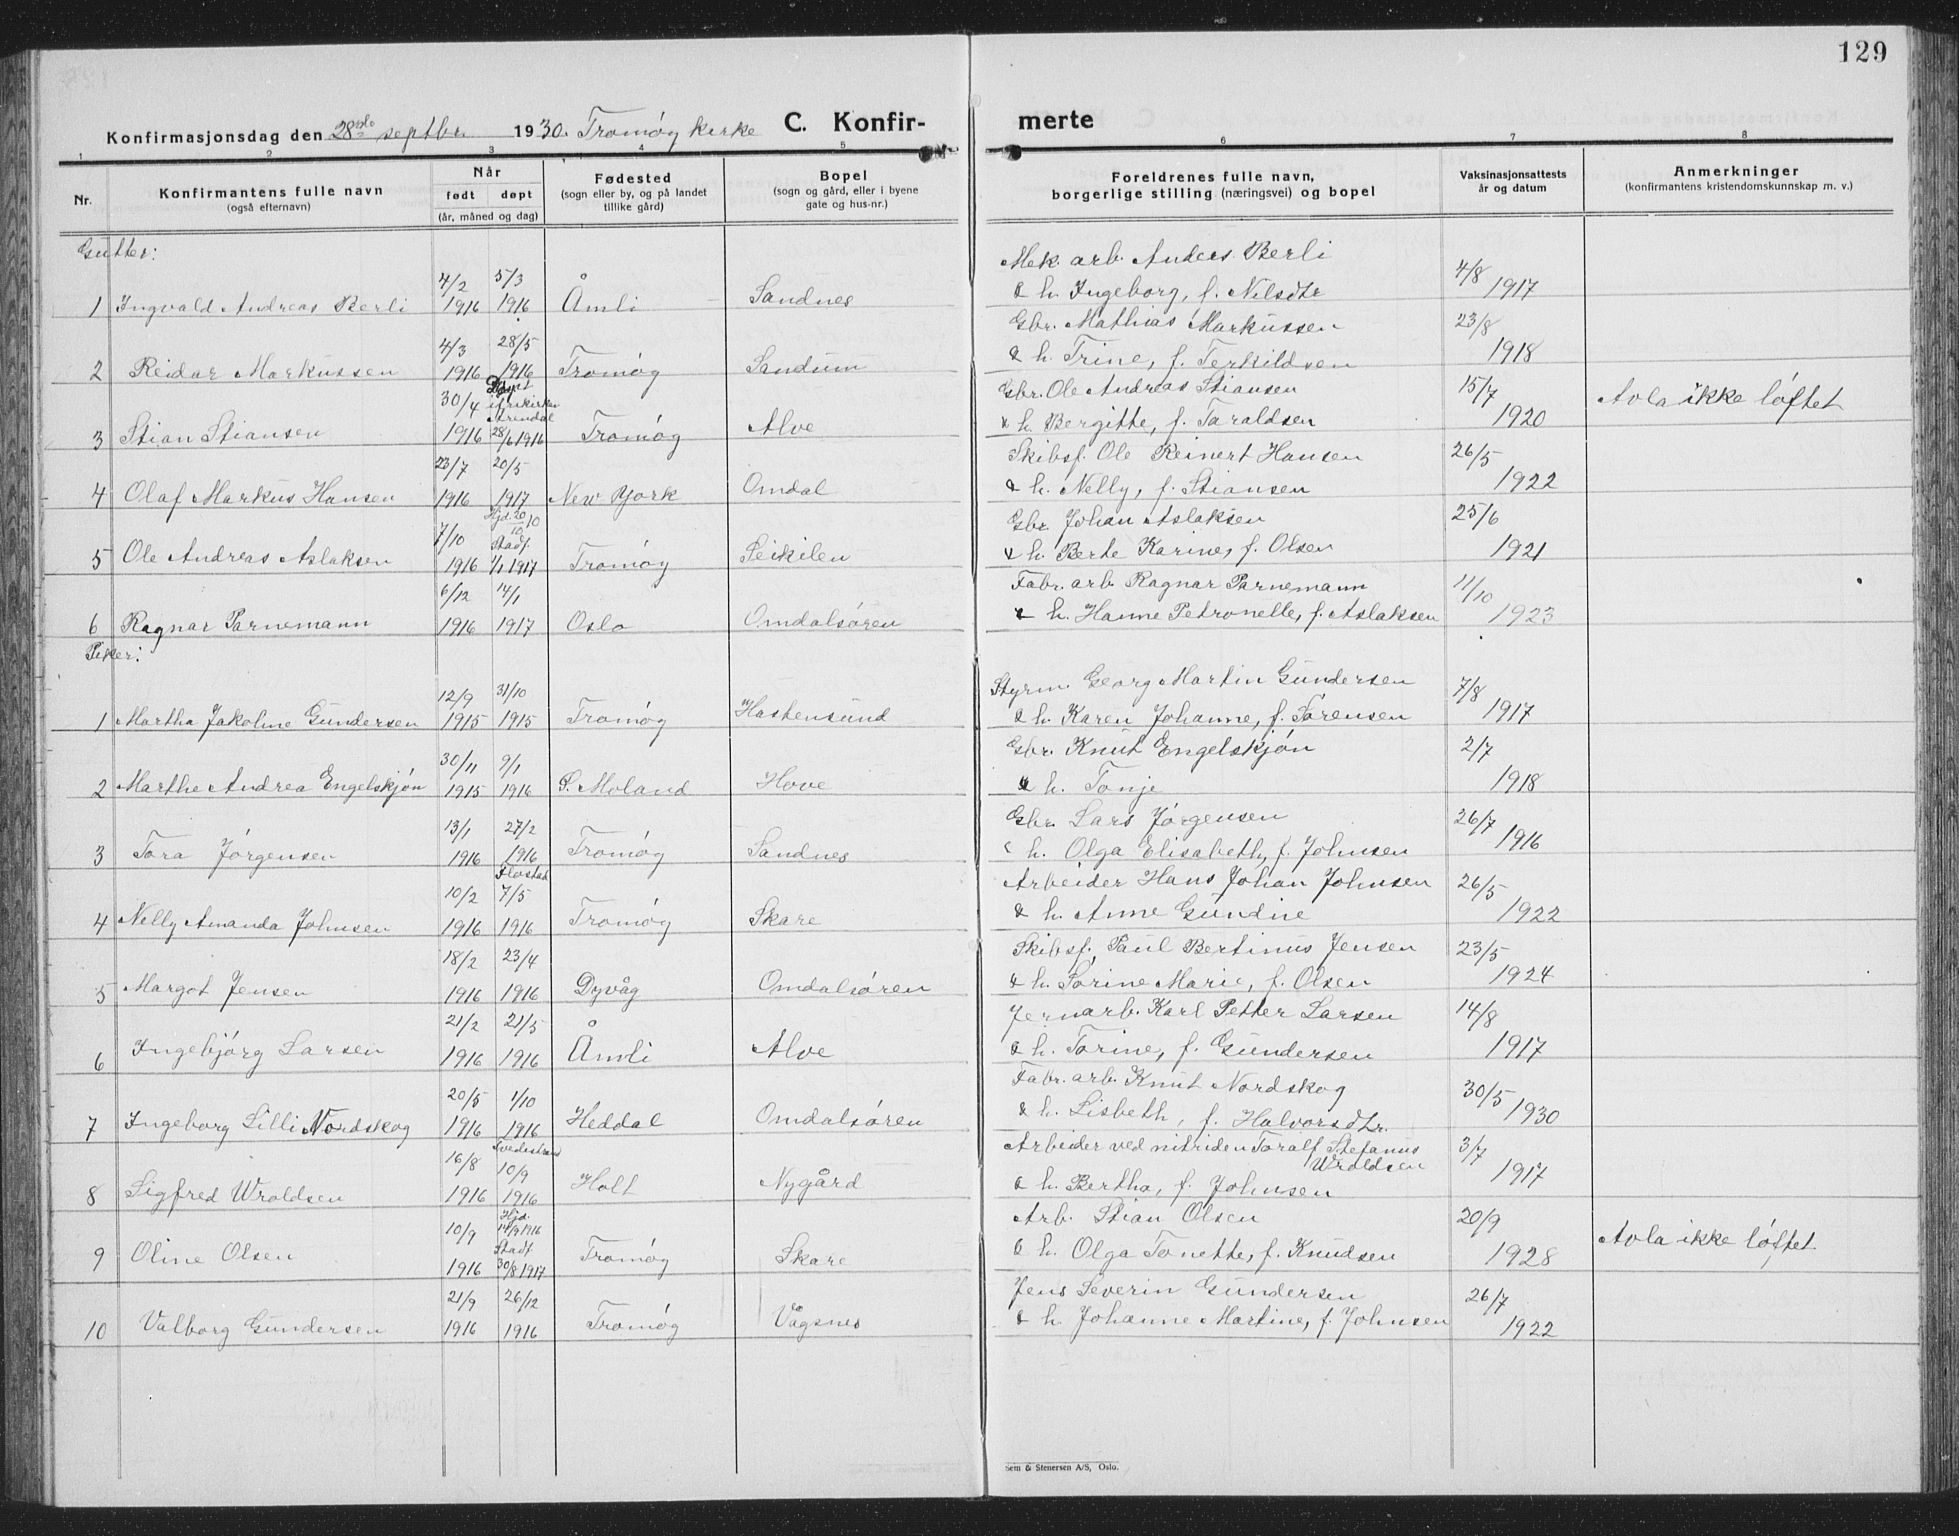 129
Konfirmasjonsdag den 28de septbr. 1930. Tromøy kirke C. Konfir- merte
1 2 3 4 5 6 7 8
Nr. Konfirmantens fulle navn (også efternavn) Når født døpt (år, måned og dag) Fødested (sogn eller by, og på landet tillike gård) Bopel (sogn og gård, eller i byene gate og hus-nr.) Foreldrenes fulle navn, borgerlige stilling (næringsvei) og bopel Vaksinasjonsattests år og datum Anmerkninger (konfirmantens kristendomskunnskap m. v.)
Gutter:
1 Ingvald Andreas Berli 4/2 1916 5/3 1916 Åmli Sandnes Mek. arb. Anders Berli & h. Ingeborg, f. Nilsdtr 4/8 1917
2 Reidar Markussen 4/3 1916 28/5 1916 Tromøy Sandum Gbr. Mathias Markussen & h. Trine, f. Terkildsen 23/8 1918
3 Stian Stiansen 30/4 1916 Døpt i frikirken Arendal 28/6 1916 Tromøy Alve Gbr. Ole Andreas Stiansen & h. Bergitte, f. Taraldsen 15/7 1920 Avla ikke løftet
4 Olaf Markus Hansen 23/7 1916 20/5 1917 New York Omdal Skibsf. Ole Reinert Hansen & h. Nelly, f. Stiansen 26/5 1922
5 Ole Andreas Aslaksen 7/10 1916 Hjd. 20/10 Stadf. 1/1 1917 Tromøy Seikilen Gbr. Johan Aslaksen & h. Berte Karine, f. Olsen 25/6 1921
6 Ragnar Parnemann 6/12 1916 14/1 1917 Oslo Omdalsøren Fabr. arb. Ragnar Parnemann & h. Hanne Petronelle, f. Aslaksen 11/10 1923
Piker:
1 Martha Jakoline Gundersen 12/9 1915 31/10 1915 Tromøy Hastensund Styrm. Georg Martin Gundersen & h. Karen Johanne, f. Sørensen 7/8 1917
2 Marthe Andrea Engelskjøn 30/11 1915 9/1 1916 Ø. Moland Hove Gbr. Knut Engelskjøn & h. Tonje 2/7 1918
3 Tora Jørgensen 13/1 1916 27/2 1916 Tromøy Sandnes Gbr. Lars Jørgensen & h. Olga Elisabeth, f. Johnsen 26/7 1916
4 Nelly Amanda Johnsen 10/2 1916 Flostad 7/5 1916 Tromøy Skare Arbeider Hans Johan Johnsen & h. Anne Gundine 26/5 1922
5 Margot Jensen 18/2 1916 23/4 1916 Dyvåg Omdalsøren Skibsf. Paul Bertinus Jensen & h. Sørine Marie, f. Olsen 23/5 1924
6 Ingebjørg Larsen 21/2 1916 21/5 1916 Åmli Alve Jernarb. Karl Petter Larsen & h. Torine, f. Gundersen 14/8 1917
7 Ingeborg Lilli Nordskog 20/5 1916 1/10 1916 Heddal Omdalsøren Fabr. arb. Knut Nordskog & h. Lisbeth, f. Halvorsdtr. 30/5 1930
8 Sigfred Wroldsen 16/8 1916 Tvedestrand 10/9 1916 Holt Nygård Arbeider ved nitriden Toralf Stefanus Wroldsen & h. Bertha, f. Johnsen 3/7 1917
9 Oline Olsen 10/9 1916 Hjd. 14/9 1916 Stadf. 30/8 1917 Tromøy Skare Arb. Stian Olsen & h. Olga Tonette, f. Knudsen 20/9 1928 Avla ikke løftet
10 Valborg Gundersen 21/9 1916 26/12 1916 Tromøy Vågsnes Jens Severin Gundersen & h. Johanne Martine, f. Johnsen 26/7 1922
Sem & Stenersen A/S, Oslo.